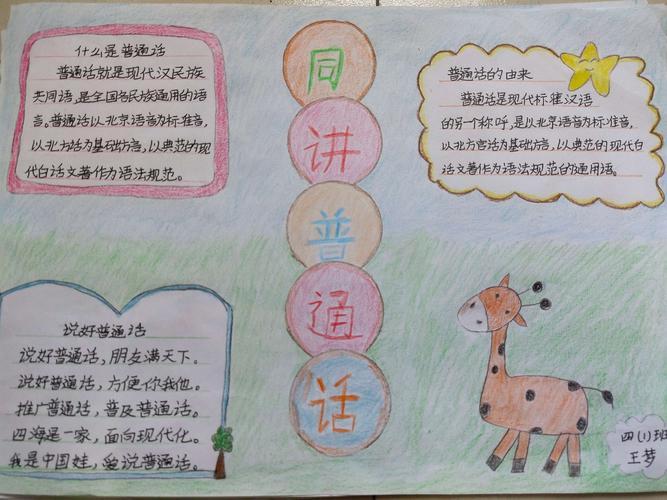 什么是普通话
普通话就是现代汉民族
共同语,是全国各民族通用的语
言。普通话以北京语音为标准音,
以北方话为基础方言,以典范的现
代白话文著作为语法规范。
同
讲
普
通
话
普通话的由来
普通话是现代标准汉语
的另一个称呼,是以北京语音为标准音,
以北方官话为基础方言,以典范的现代白
话文著作为语法规范的通用语。
说好普通话
说好普通话,朋友满天下。
说好普通话,方便你我他。
推广普通话,普及普通话。
四海是一家,面向现代化。
我是中国娃,爱说普通话。
四(1)班
王梦